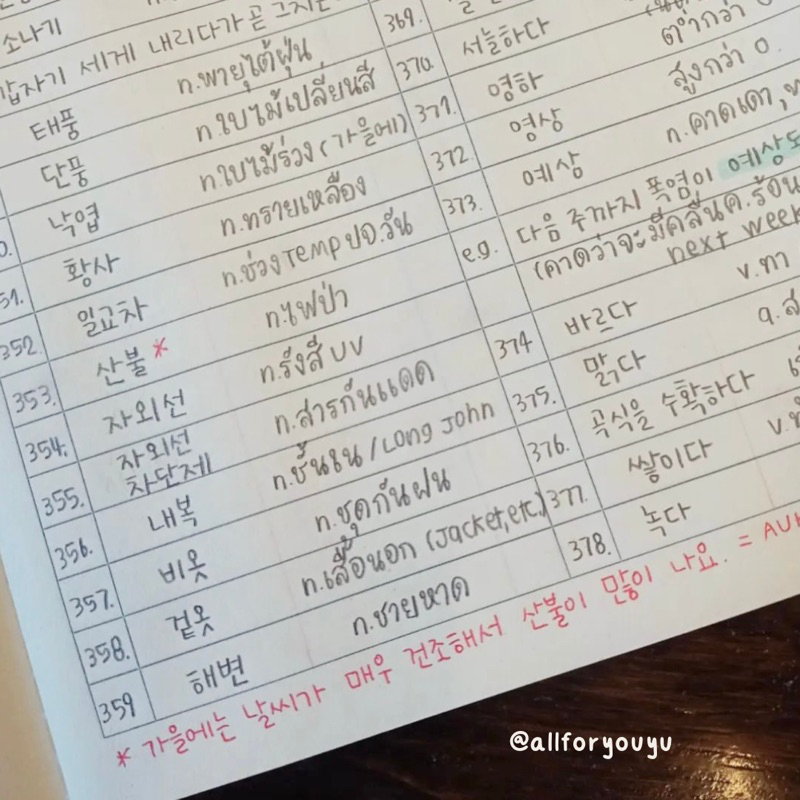 소나기
갑자기 세게 내리다가 곧 그치는
태풍 n.พายุไต้ฝุ่น
단풍 n.ใบไม้เปลี่ยนสี
낙엽 n.ใบไม้ร่วง (가을에)
황사 n.ทรายเหลือง
일교차 n.ช่วงTemp ปอ.วัน
352. 산불* n.ไฟป่า
353. 자외선 n.รังสี UV
354. 자외선 차단제 n.สารกันแดด
355. 내복 n.ชั้นใน / Long John
356. 비옷 n.ชุดกันฝน
357. 겉옷 n.เสื้อนอก (Jacket,etc.)
358. 해변 n.ชายหาด
359
369. 서늘하다
370. 영하 ต่ำกว่า 0
371. 영상 สูงกว่า 0.
372. 예상 n.คาดเดา,
373. 다음 주까지 폭염이 예상되
e.g. (คาดว่าจะมีคลื่นค.ร้อน
next week
바르다 v.ทา
374 맑다
375. 곡식을 수확하다
376. 쌓이다
377. 녹다
378.
* 가을에는 날씨가 매우 건조해서 산불이 많이 나요. =
@allforyouyu